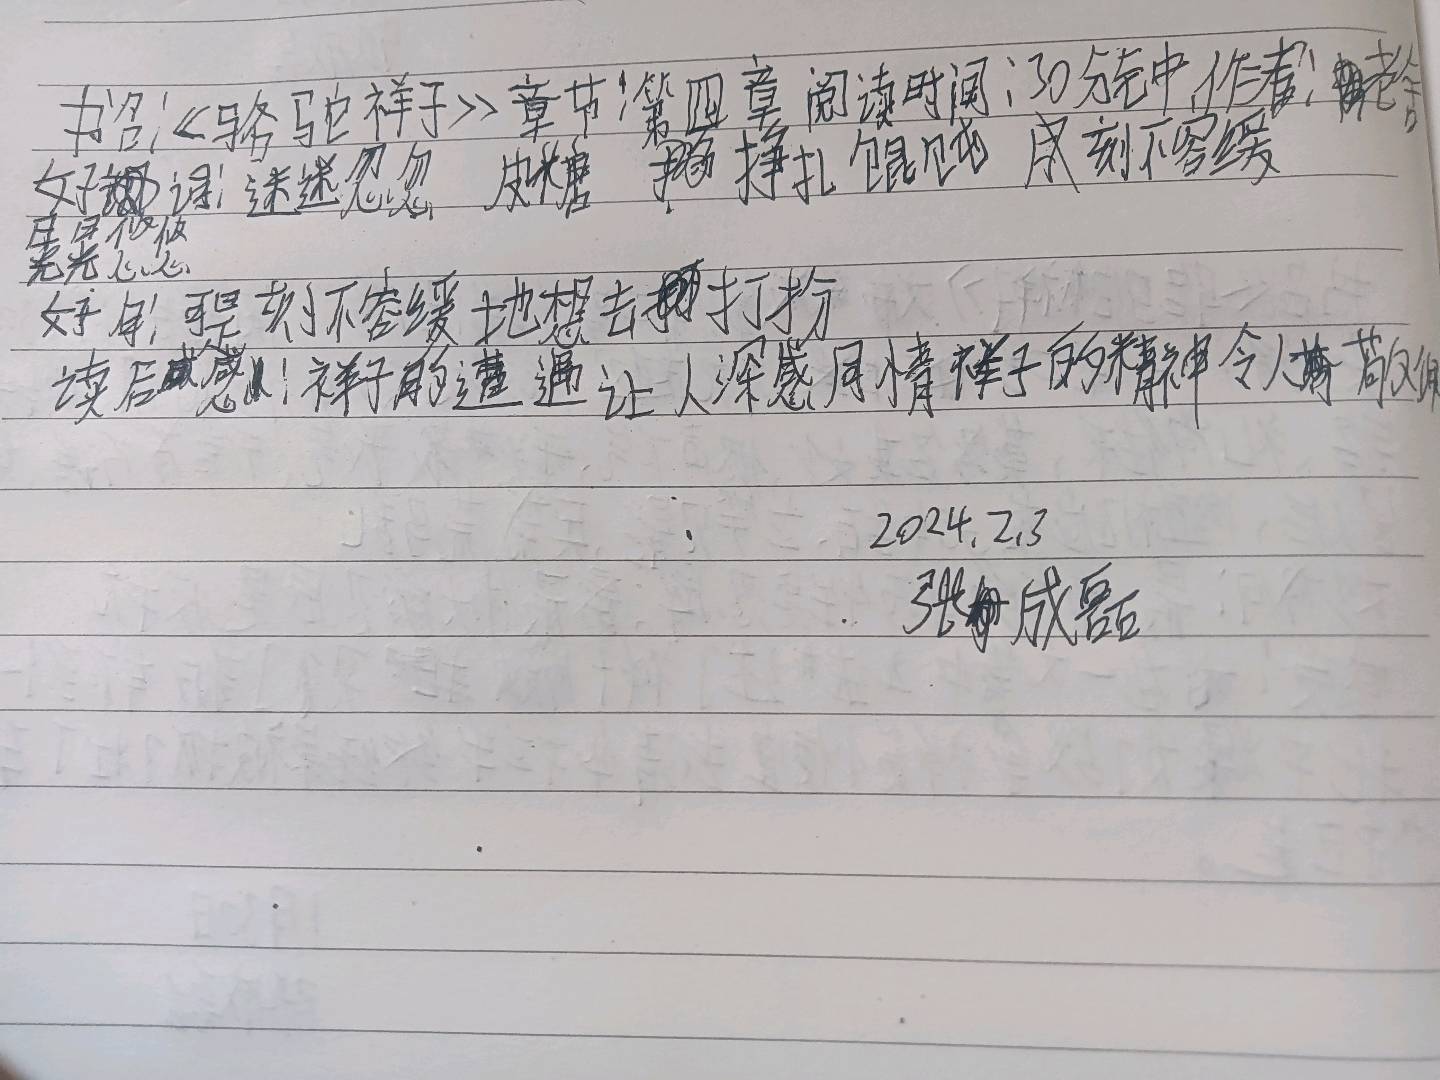 书名:《骆驼祥子》章节:第四章 阅读时间:30分中 作者:老舍
好词:迷迷忽忽 皮糖 挣扎 馄饨 刻不容缓
晃晃悠悠
好句:刻不容缓地想去打扮
读后感:祥子的遭遇让人深感同情祥子的精神令人敬佩
2024.2.3
张成磊